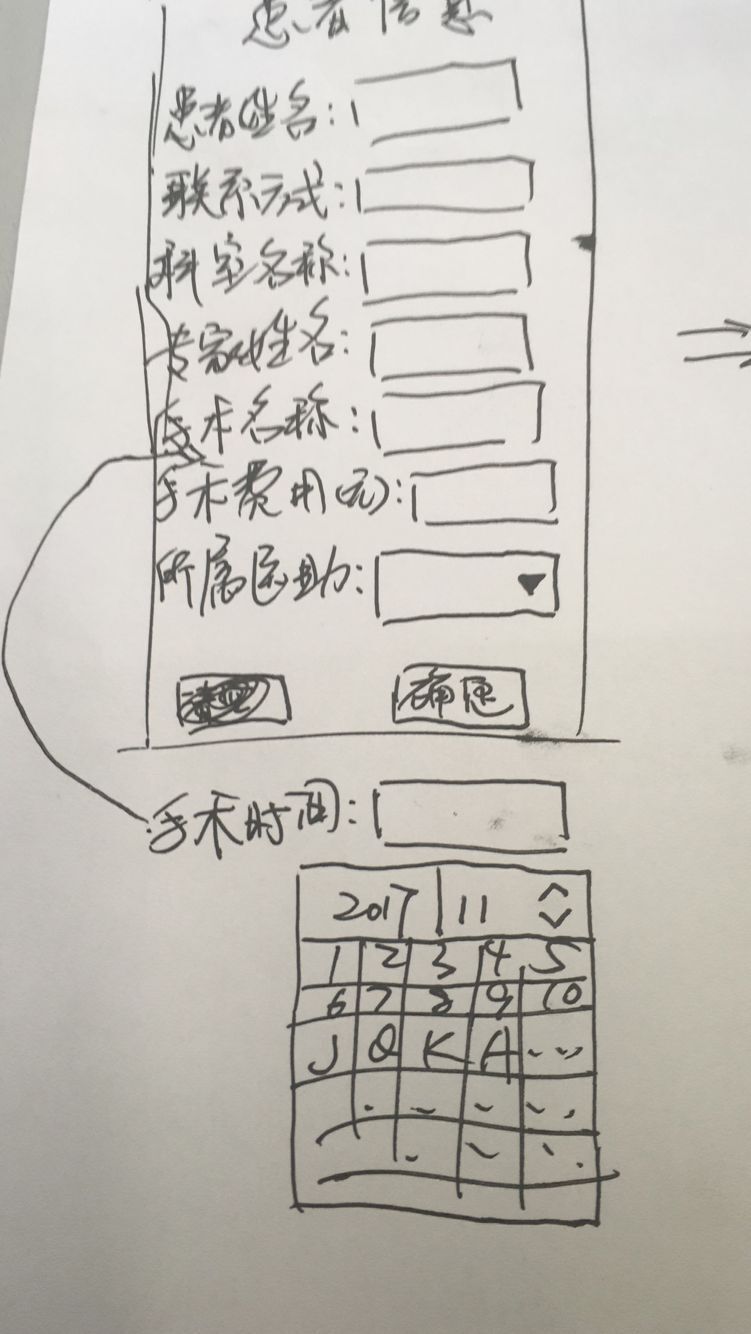 患者信息
患者姓名:
联系方式:
科室名称:
专家姓名:
手术名称:
手术费用(元):
所属医助:
确认
手术时间:
2017 11
1 2 3 4 5
6 7 8 9 10
J Q K A ...